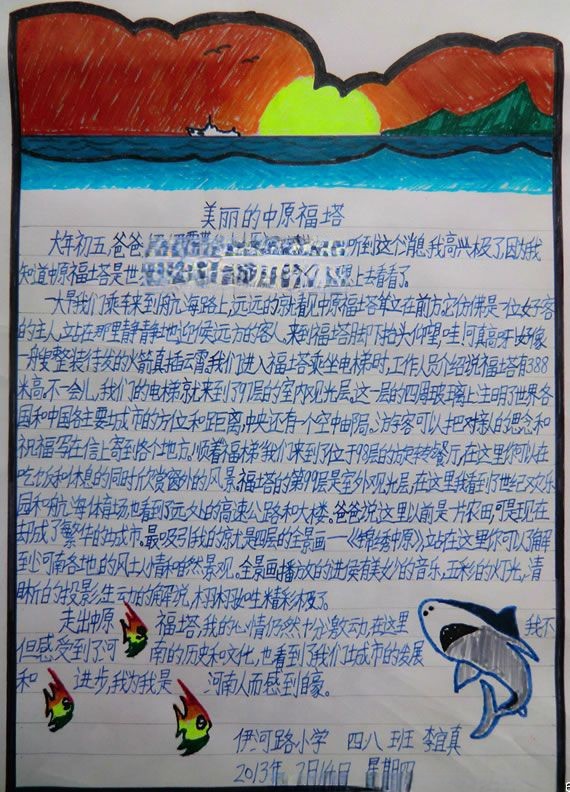 美丽的中原福塔
大年初五,爸爸听到这个消息,我高兴极了,因为我
知道中原福塔是世上去看看了。
一大早我们乘车来到航海路上,远远的就看见中原福塔耸立在前方,它仿佛是一位好客
的主人,站在那里静静地迎候远方的客人。来到福塔脚下抬头仰望,哇!可真高呀!好像
一艘整装待发的火箭直插云霄。我们进入福塔乘坐电梯时,工作人员介绍说福塔有388
米高,不一会儿,我们的电梯就来到了97层的室内观光层,这一层的四周玻璃上注明了世界各
国和中国各主要城市的方位和距离,中央还有一个空中邮局。访客可以把对亲人的思念和
祝福写在信上寄到各个地方。顺着福梯我们来到了位于98层的旋转餐厅,在这里你可以在
吃饭和休息的同时欣赏窗外的风景。福塔的第99层是室外观光层,在这里我看到了世纪欢乐
园和航海体育场,也看到了远处的高速公路和大楼。爸爸说这里以前是一片农田,可是现在
却成了繁华的城市。最吸引我的就是四层的全景画——《锦绣中原》站在这里你可以了解
到河南各地的风土人情和自然景观。全景画播放的进候有美妙的音乐,五彩的灯光,清
晰的投影,生动的解说,栩栩如生精彩极了。
走出中原福塔,我的心情仍然十分激动,在这里我不
但感受到了河南的历史和文化,也看到了我们城市的发展
和进步,我为我是河南人而感到自豪。
伊河路小学 四八班 李宜真
2013年2月14日 星期四